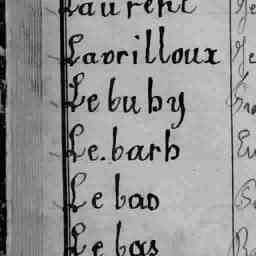 Laurent
Lavrilloux
Le buhy
Le. barh
Le bao
Le bas